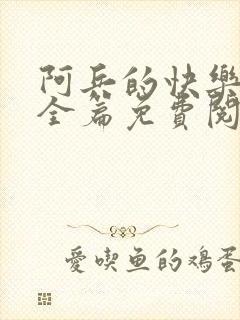 阿兵的快樂
全篇免費閱
愛喫魚的鸡蛋